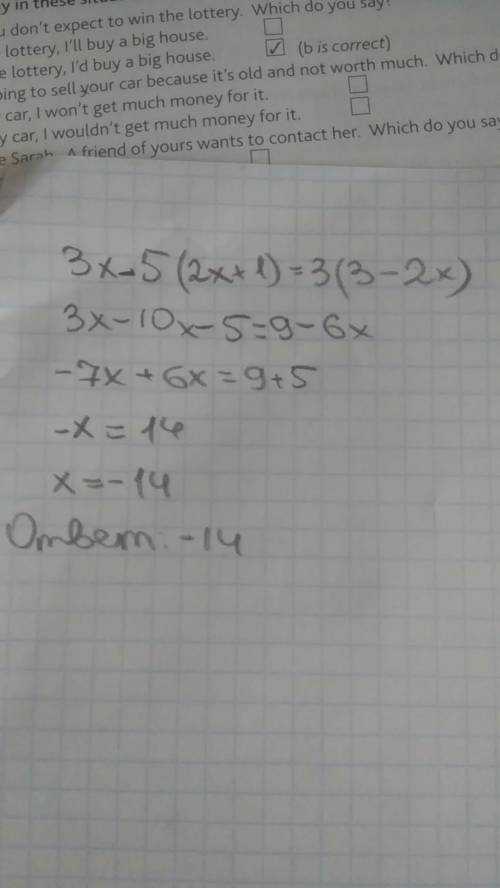 y in these situ
u don't expect to win the lottery. Which do you say?
lottery, I'll buy a big house.
e lottery, I'd buy a big house. ✓ (b is correct)
oing to sell your car because it's old and not worth much. Which d
car, I won't get much money for it.
y car, I wouldn't get much money for it.
e Sarah. A friend of yours wants to contact her. Which do you say
3x-5(2x+1)=3(3-2x)
3x-10x-5=9-6x
-7x+6x=9+5
-x=14
x=-14
Ответ: -14